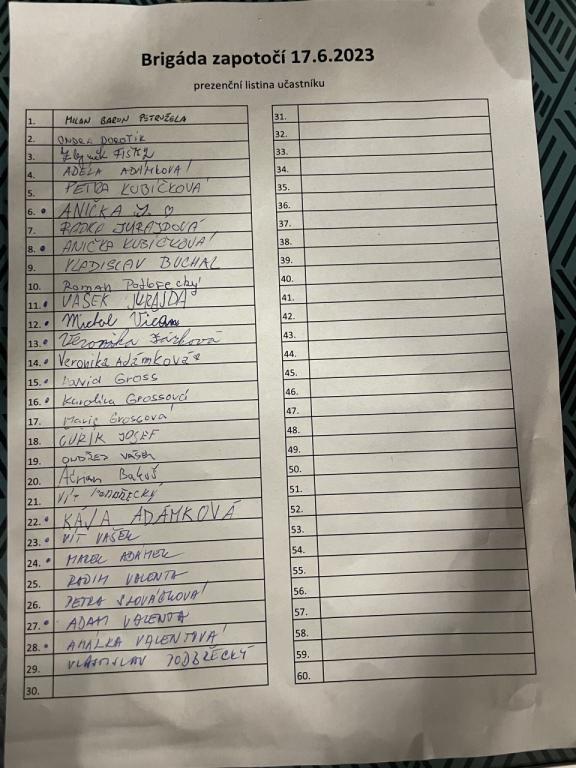 Brigáda zapotočí 17.6.2023
prezenční listina učastníku
1. MILAN BARON PETRUŽELA
2. ONDRA DOROTÍK
3. Zbyněk
4. ADÉLA ADÁMKOVÁ
5. PETRA KUBÍČKOVÁ
6. • ANIČKA J. ♡
7. RADKA JURAJDOVÁ
8. • ANIČKA KUBÍČKOVÁ
9. VLADISLAV BUCHAL
10. Roman Podbřecký
11. • VAŠEK JURAJDA
12. • Michal
13. • Veronika
14. • Veronika ADÁMKOVÁ
15. • David Gross
16. • Karolína Grossová
17. Marie Grossová
18. CUŘÍK JOSEF
19. ONDŘEJ VAŠEK
20. Adrian
21. VÍT PODBŘECKÝ
22. • KÁJA ADÁMKOVÁ
23. • VÍT VAŠEK
24. • MAREK ADÁMEK
25. RADIM VALENTA
26. PETRA SLOVÁČKOVÁ
27. • ADAM VALENTA
28. • AMÁLKA VALENTOVÁ
29. VLASTISLAV PODBŘECKÝ
30.
31.
32.
33.
34.
35.
36.
37.
38.
39.
40.
41.
42.
43.
44.
45.
46.
47.
48.
49.
50.
51.
52.
53.
54.
55.
56.
57.
58.
59.
60.